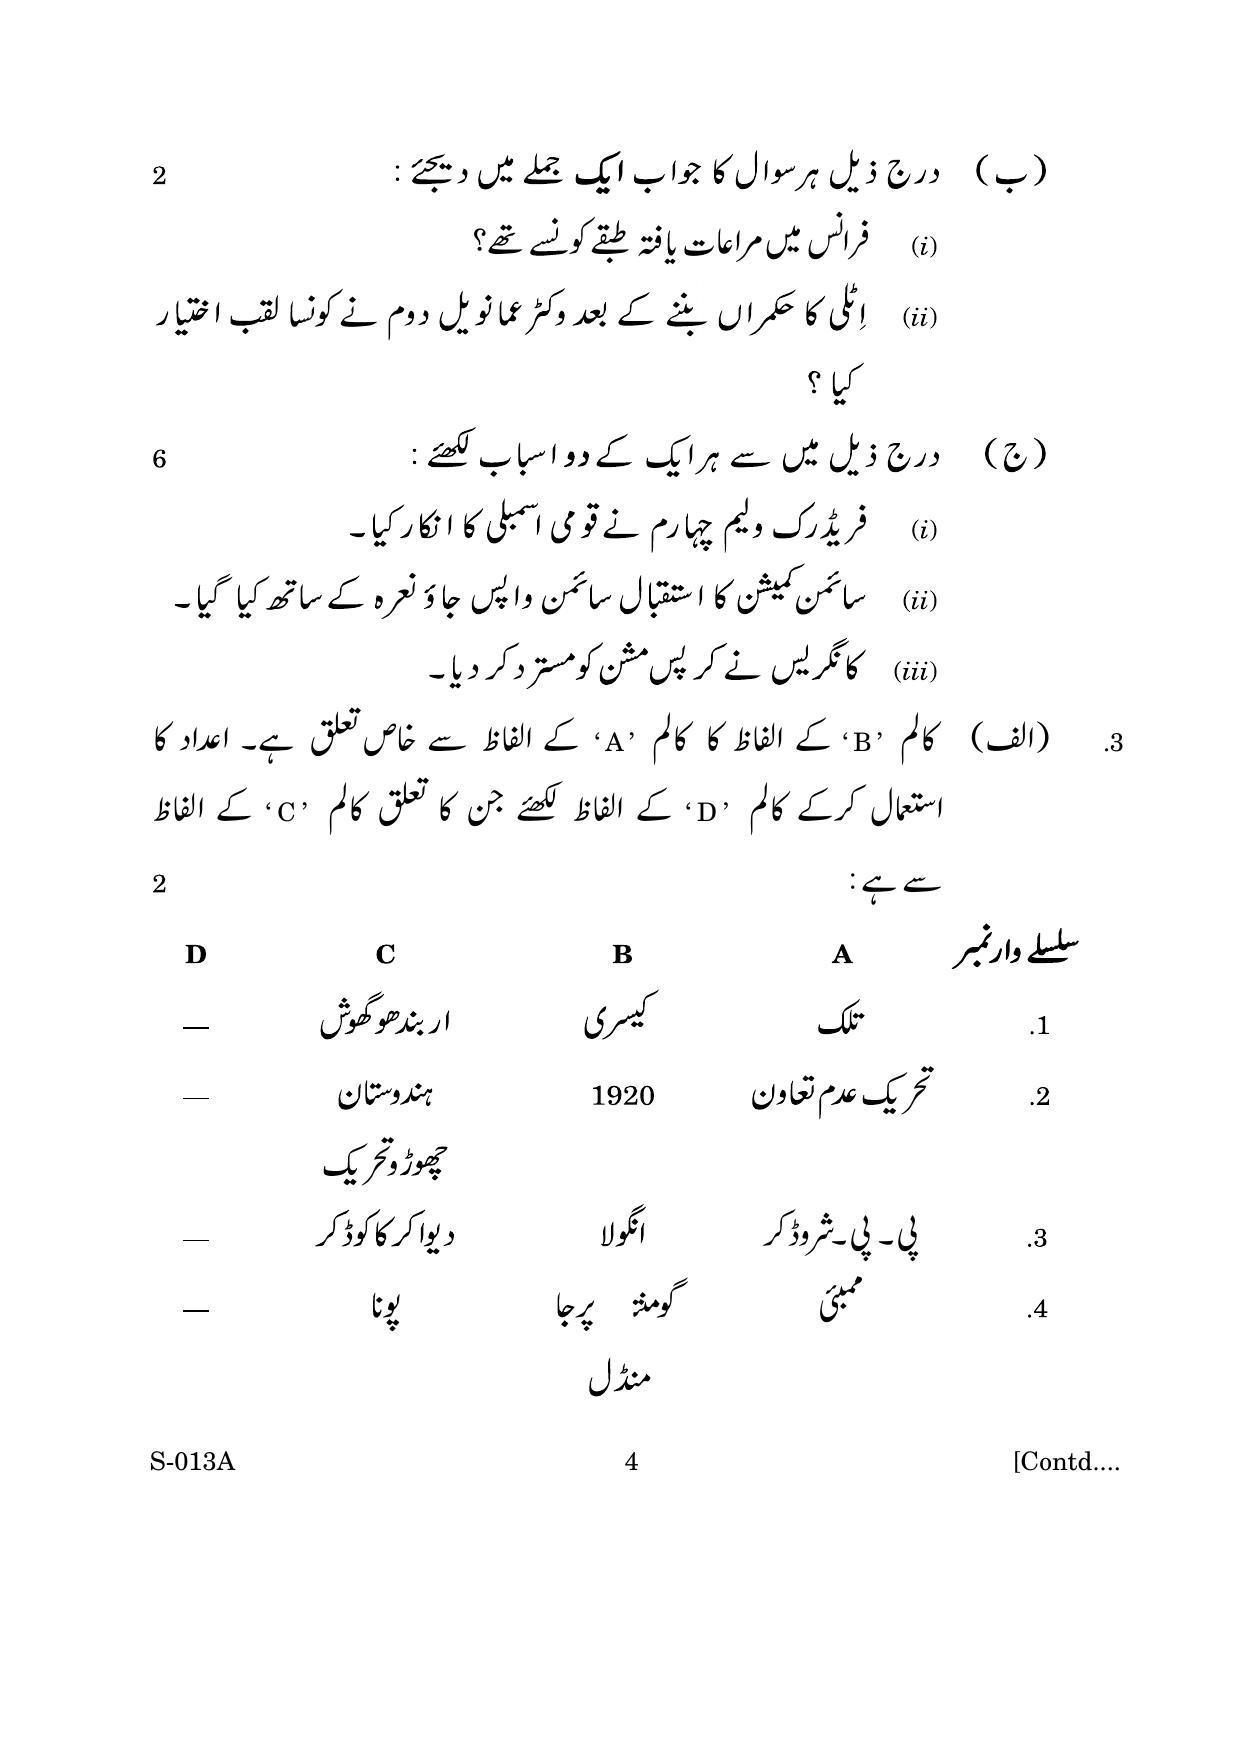 (ب) درج ذیل ہر سوال کا جواب ایک جملے میں دیجئے : 2
(i) فرانس میں مراعات یافتہ طبقے کونسے تھے؟
(ii) اِٹلی کا حکمراں بننے کے بعد وکٹر عمانویل دوم نے کونسا لقب اختیار
کیا ؟
(ج) درج ذیل میں سے ہر ایک کے دو اسباب لکھئے : 6
(i) فریڈرک ولیم چہارم نے قومی اسمبلی کا انکار کیا۔
(ii) سائمن کمیشن کا استقبال سائمن واپس جاؤ نعرہ کے ساتھ کیا گیا۔
(iii) کانگریس نے کرپس مشن کو مسترد کر دیا۔
3. (الف) کالم ’B‘ کے الفاظ کا کالم ’A‘ کے الفاظ سے خاص تعلق ہے۔ اعداد کا
استعمال کرکے کالم ’D‘ کے الفاظ لکھئے جن کا تعلق کالم ’C‘ کے الفاظ
سے ہے : 2
سلسلے وار نمبر A B C D
1. تلک کیسری اربندھو گھوش —
2. تحریک عدم تعاون 1920 ہندوستان —
چھوڑو تحریک
3. پی۔ پی۔ شروڈکر انگولا دیواکر کاکوڈکر —
4. ممبئی گومنتہ پرجا پونا —
منڈل
S-013A 4 [Contd....